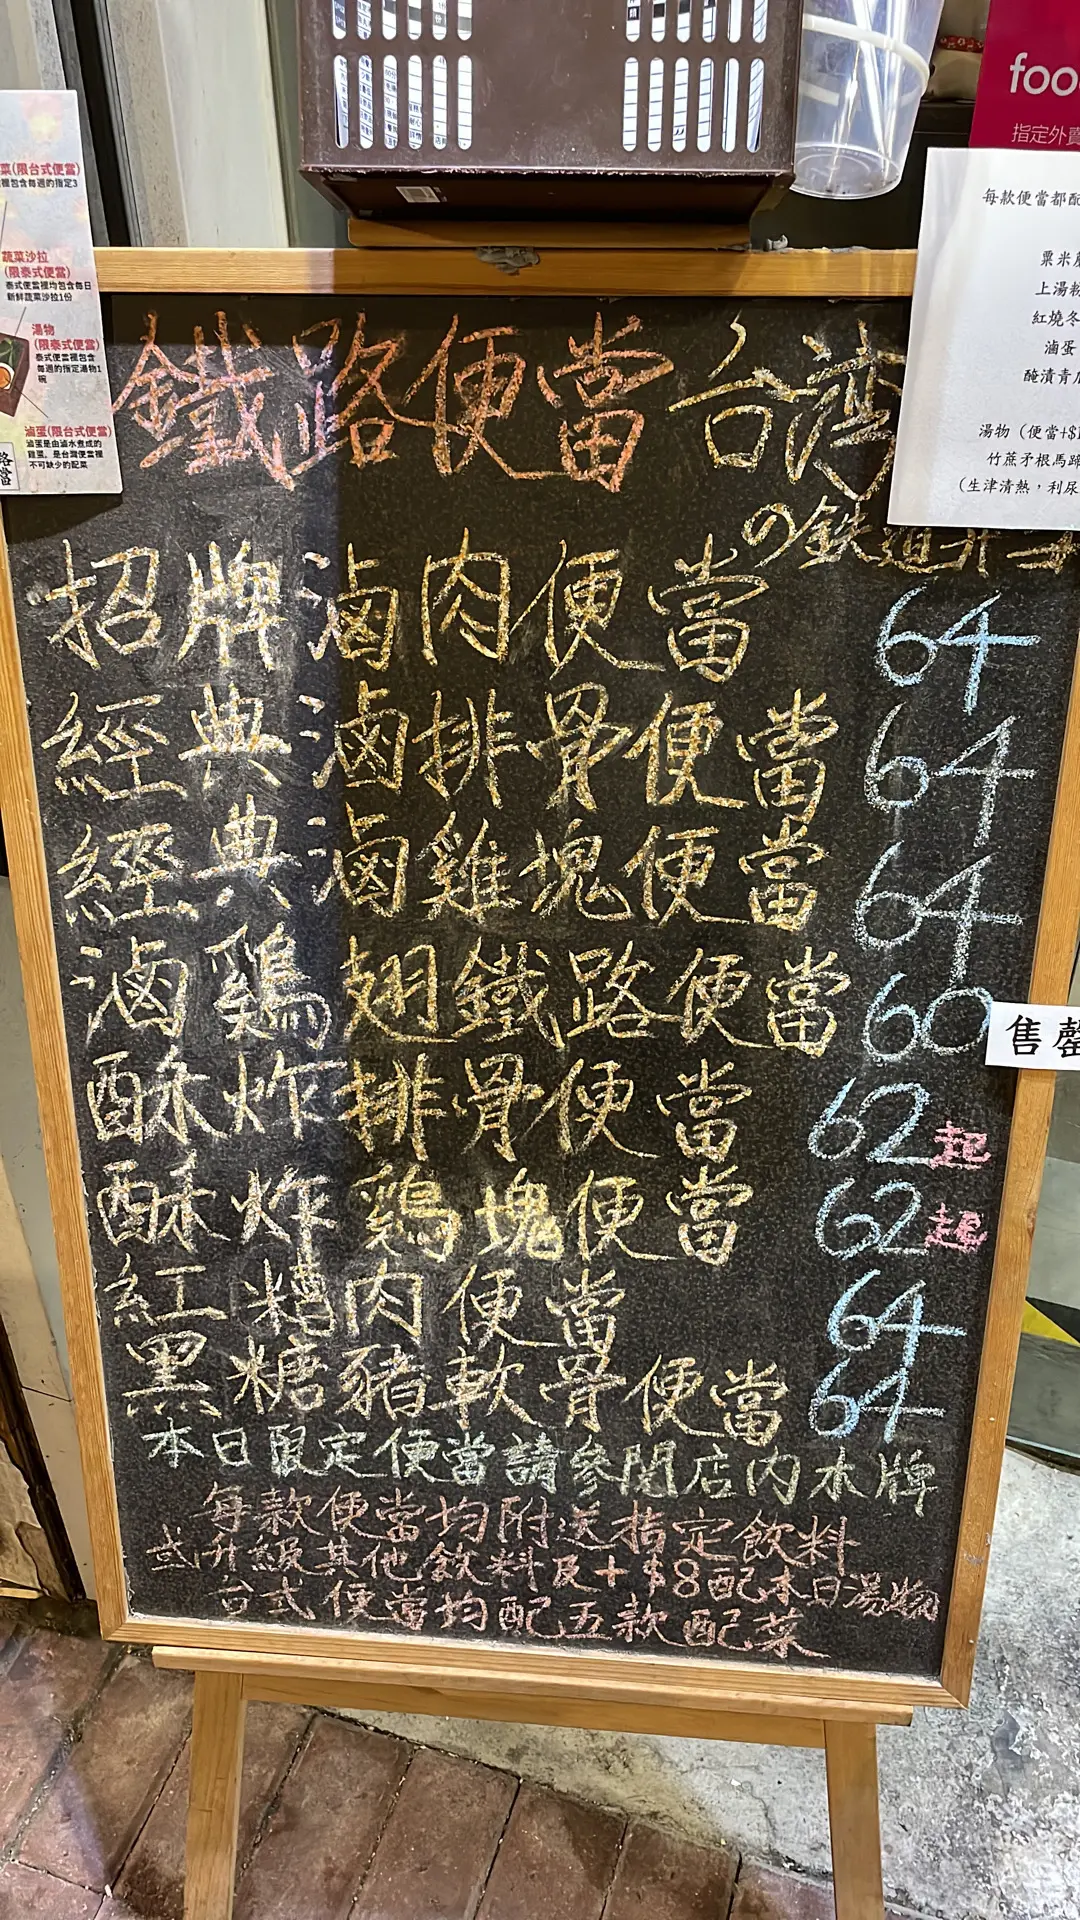 菜(限台式便當)
裡包含每週的指定3
蔬菜沙拉
(限泰式便當)
泰式便當裡均包含每日
新鮮蔬菜沙拉1份
湯物
(限泰式便當)
泰式便當裡包含
每週的指定湯物1
碗
滷蛋(限台式便當)
滷蛋是由滷水煮成的
雞蛋，是台灣便當裡
不可缺少的配菜
foo
指定外賣
每款便當都配
粟米
上湯粉
紅燒冬
滷蛋
醃漬青瓜
湯物（便當+$
竹蔗矛根馬蹄
（生津清熱，利尿
鐵路便當 台灣
の鉄道弁当
招牌滷肉便當 64
經典滷排骨便當 64
經典滷雞塊便當 64
滷鷄翅鐵路便當 60
售罄
酥炸排骨便當 62起
酥炸鷄塊便當 62起
紅糟肉便當 64
黑糖豬軟骨便當 64
本日限定便當請參閱店內木牌
每款便當均附送指定飲料
或升級其他飲料及+$8配本日湯物
台式便當均配五款配菜